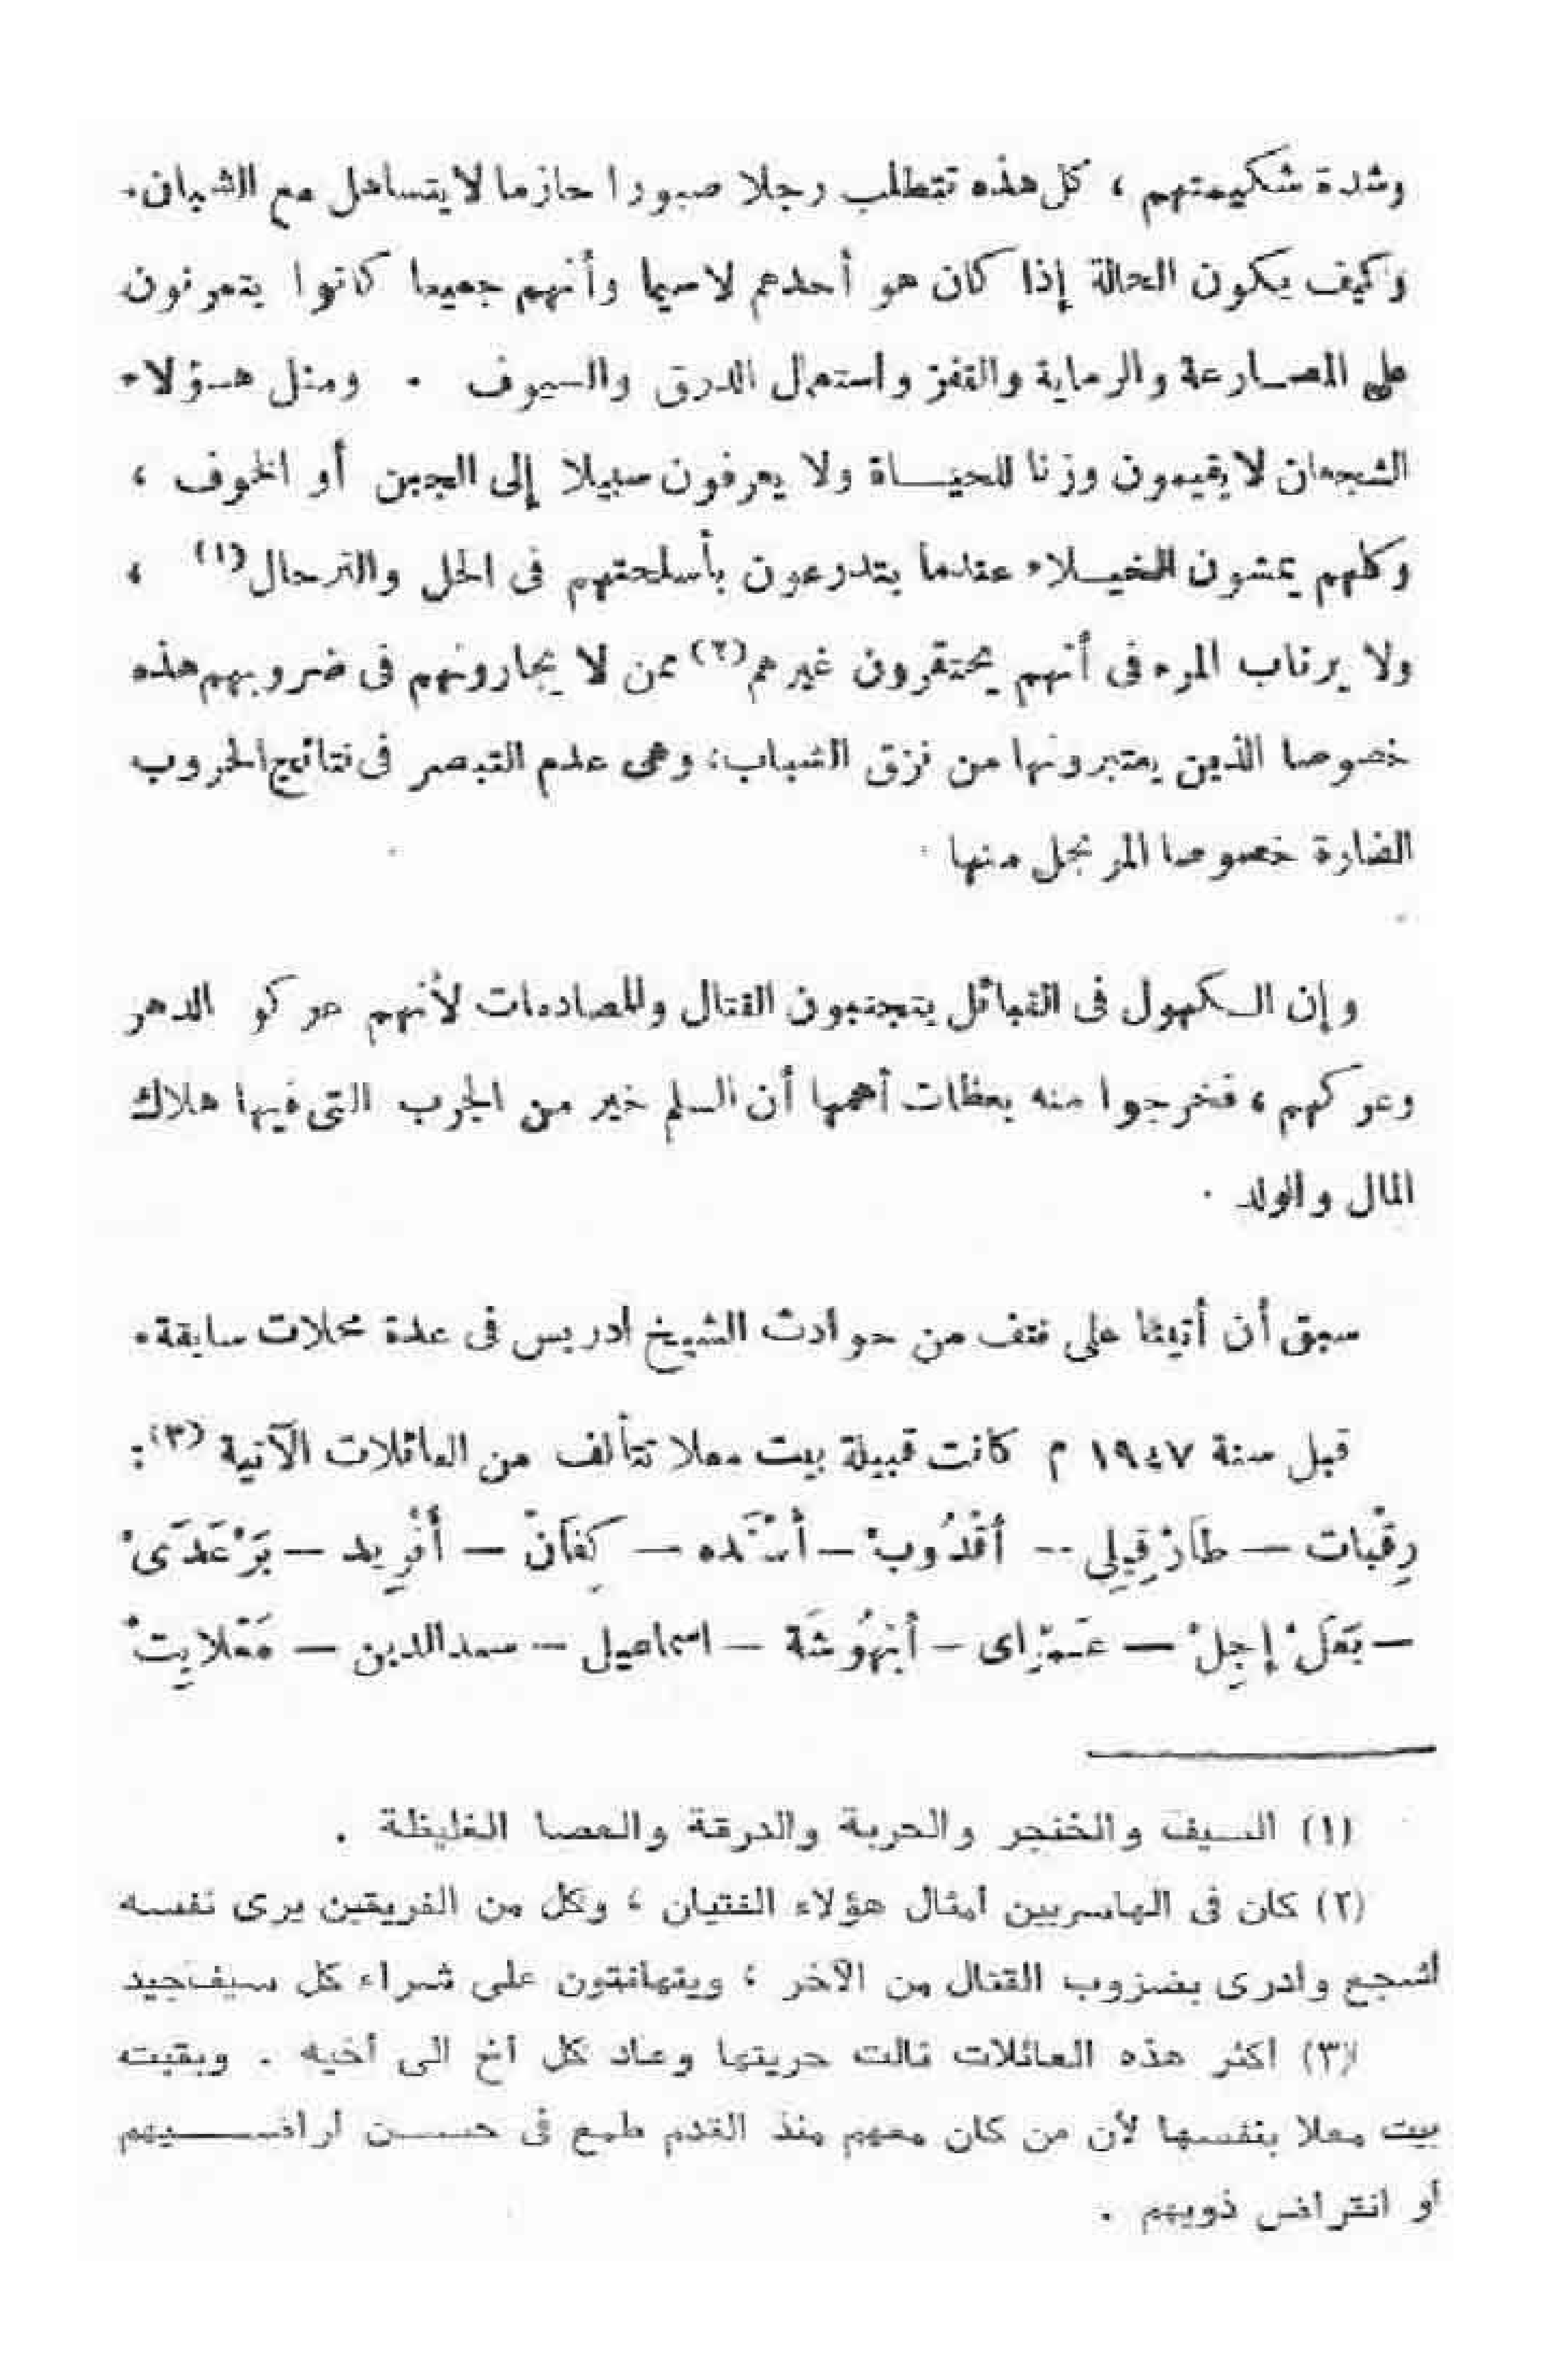 وشدة شكيمتهم ، كل هذه تتطلب رجلا صبورا حازما لا يتساهل مع الشبان .
وكيف يكون الحالة إذا كان هو أحدهم لا سيما وأنهم جميعا كانوا يتمرنون
على المصارعة والرماية والقفز واستعمال الدرق والسيوف . ومثل هؤلاء
الشجعان لا يقيمون وزنا للحياة ولا يعرفون سبيلا إلى الجبن أو الخوف ،
وكلهم يمشون الخيلاء عندما يتدرعون بأسلحتهم فى الحل والترحال (١) ،
ولا يرتاب المرء فى أنهم يحتقرون غيرهم (٢) ممن لا يجارونهم فى ضروبهم هذه
خصوصا الذين يعتبرونها من نزق الشباب : وهى عدم التبصر فى نتائج الحروب
الضارة خصوصا المرتجل منها
وإن الكهول فى القبائل يتجنبون القتال والمصادمات لأنهم عركو الدهر
وعركهم ، فخرجوا منه بعظات أهمها أن السلم خير من الحرب التى فيها هلاك
المال والولد .
سبق أن أتينا على نتف من حوادث الشيخ ادريس فى عدة محلات سابقة .
قبل سنة ١٩٤٧ م كانت قبيلة بيت معلا تتألف من العائلات الآتية (٣) :
رِقْبات — طَارْقِيلِي — أقْدُوبْ — — كِفَانّ — أفْرِيد — بَرْعَدَىْ
— بَعَلْ إجِلْ — — أبْهُوشَة — اسماعيل — سعد الدين — مَعْلايِتْ
(١) السيف والخنجر والحربة والدرقة والعصا الغليظة .
(٢) كان فى الهاسريين أمثال هؤلاء الفتيان ، وكل من الفريقين يرى نفسه
أشجع وادرى بضروب القتال من الآخر ، ويتهافتون على شراء كل سيف جيد
(٣) اكثر هذه العائلات نالت حريتها وعاد كل أخ الى أخيه . وبقيت
بيت معلا بنفسها لأن من كان معهم منذ القدم طمع فى حسن اراضيهم
أو انقراض ذويهم .